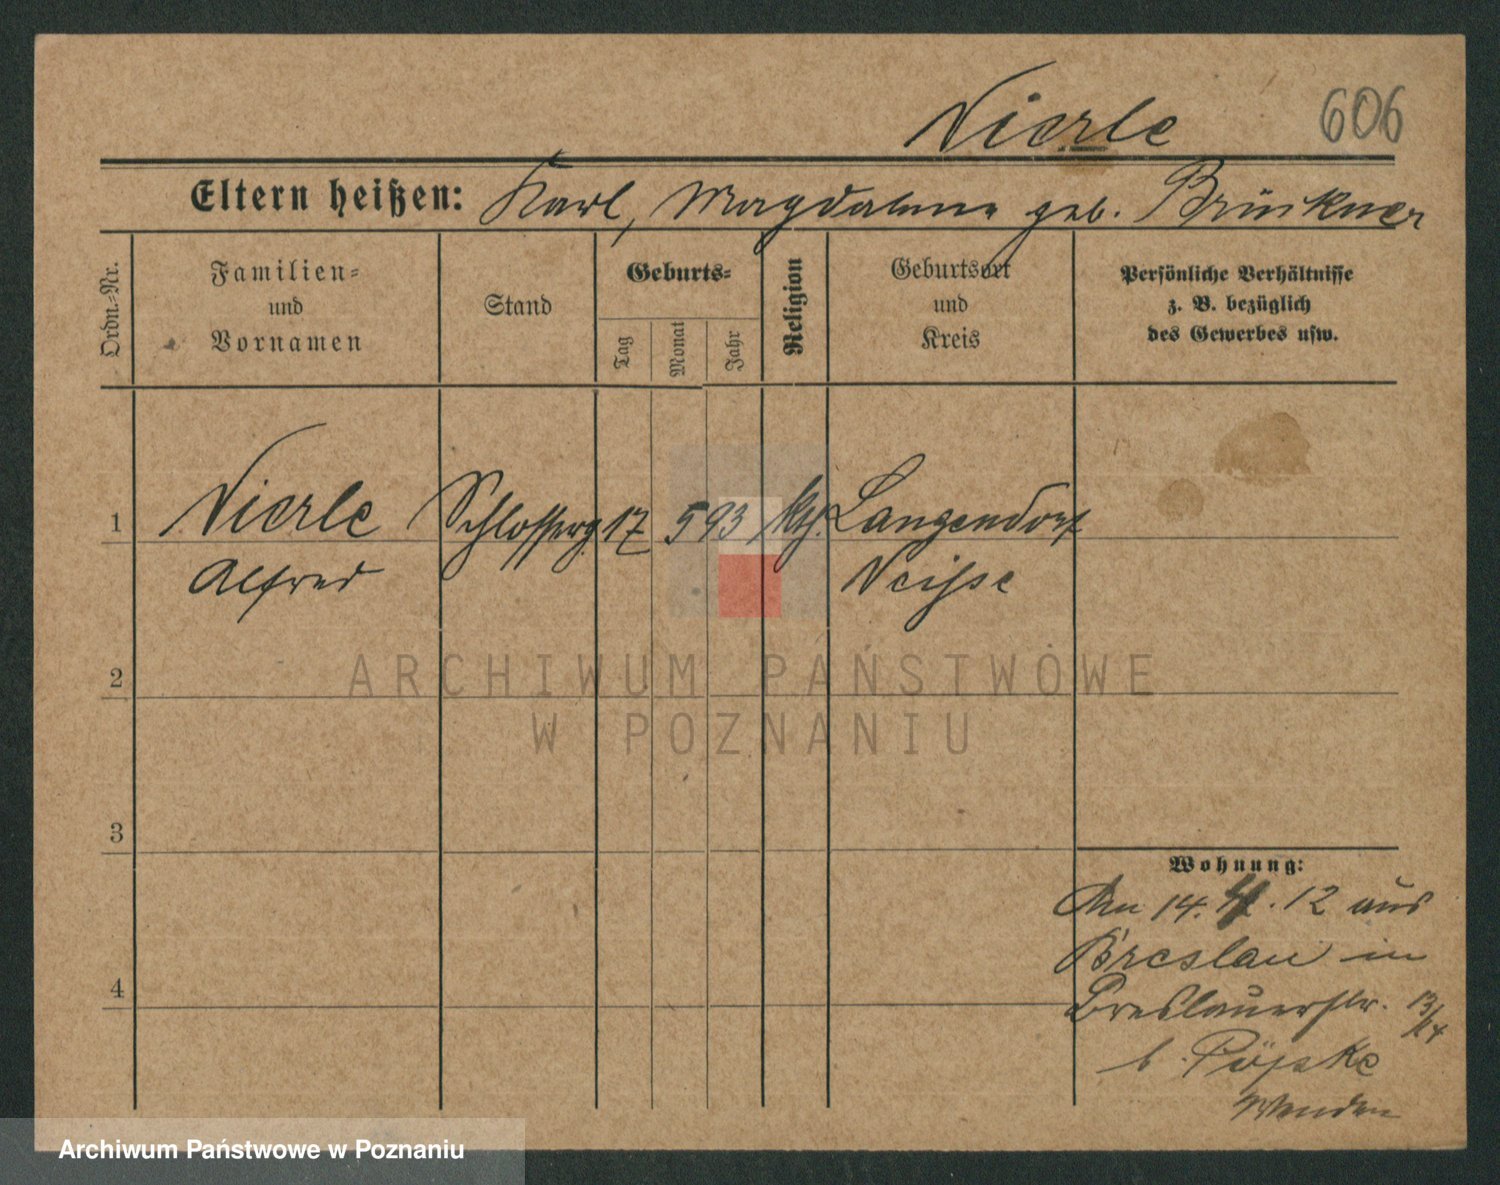 Nierle 606
Eltern heißen: Karl, Magdalena geb. Brünkner
Ordn.-Nr.
Familien-
und
Vornamen
Stand
Geburts-
Tag
Monat
Jahr
Religion
Geburtsort
und
Kreis
Persönliche Verhältnisse
z. B. bezüglich
des Gewerbes usw.
1 Nierle Schlosserg. 17 5 93 kth. Langendorf
Alfred Neisse
2
3
4
Wohnung:
Am 14. 12 aus
Breslau in
Breslauerstr. 13/14
b. Pöpke
Wenden
ARCHIWUM PAŃSTWOWE
W POZNANIU
Archiwum Państwowe w Poznaniu